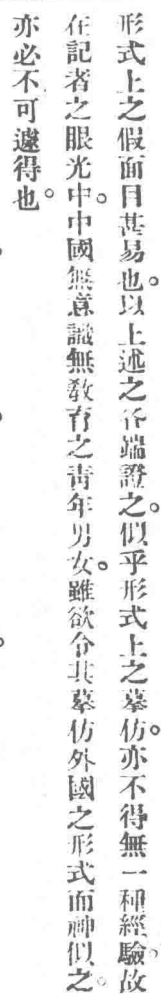 形式上之假面目甚易也。以上述之各端證之。似乎形式上之摹仿。亦不得無一種經驗。故
在記者之眼光中。中國無意識無敎育之靑年男女。雖欲令其摹仿外國之形式而神似之。
亦必不可遽得也。